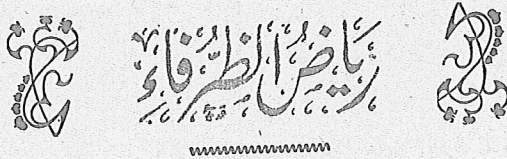 رِيَاضُ الظُّرَفَاءِ